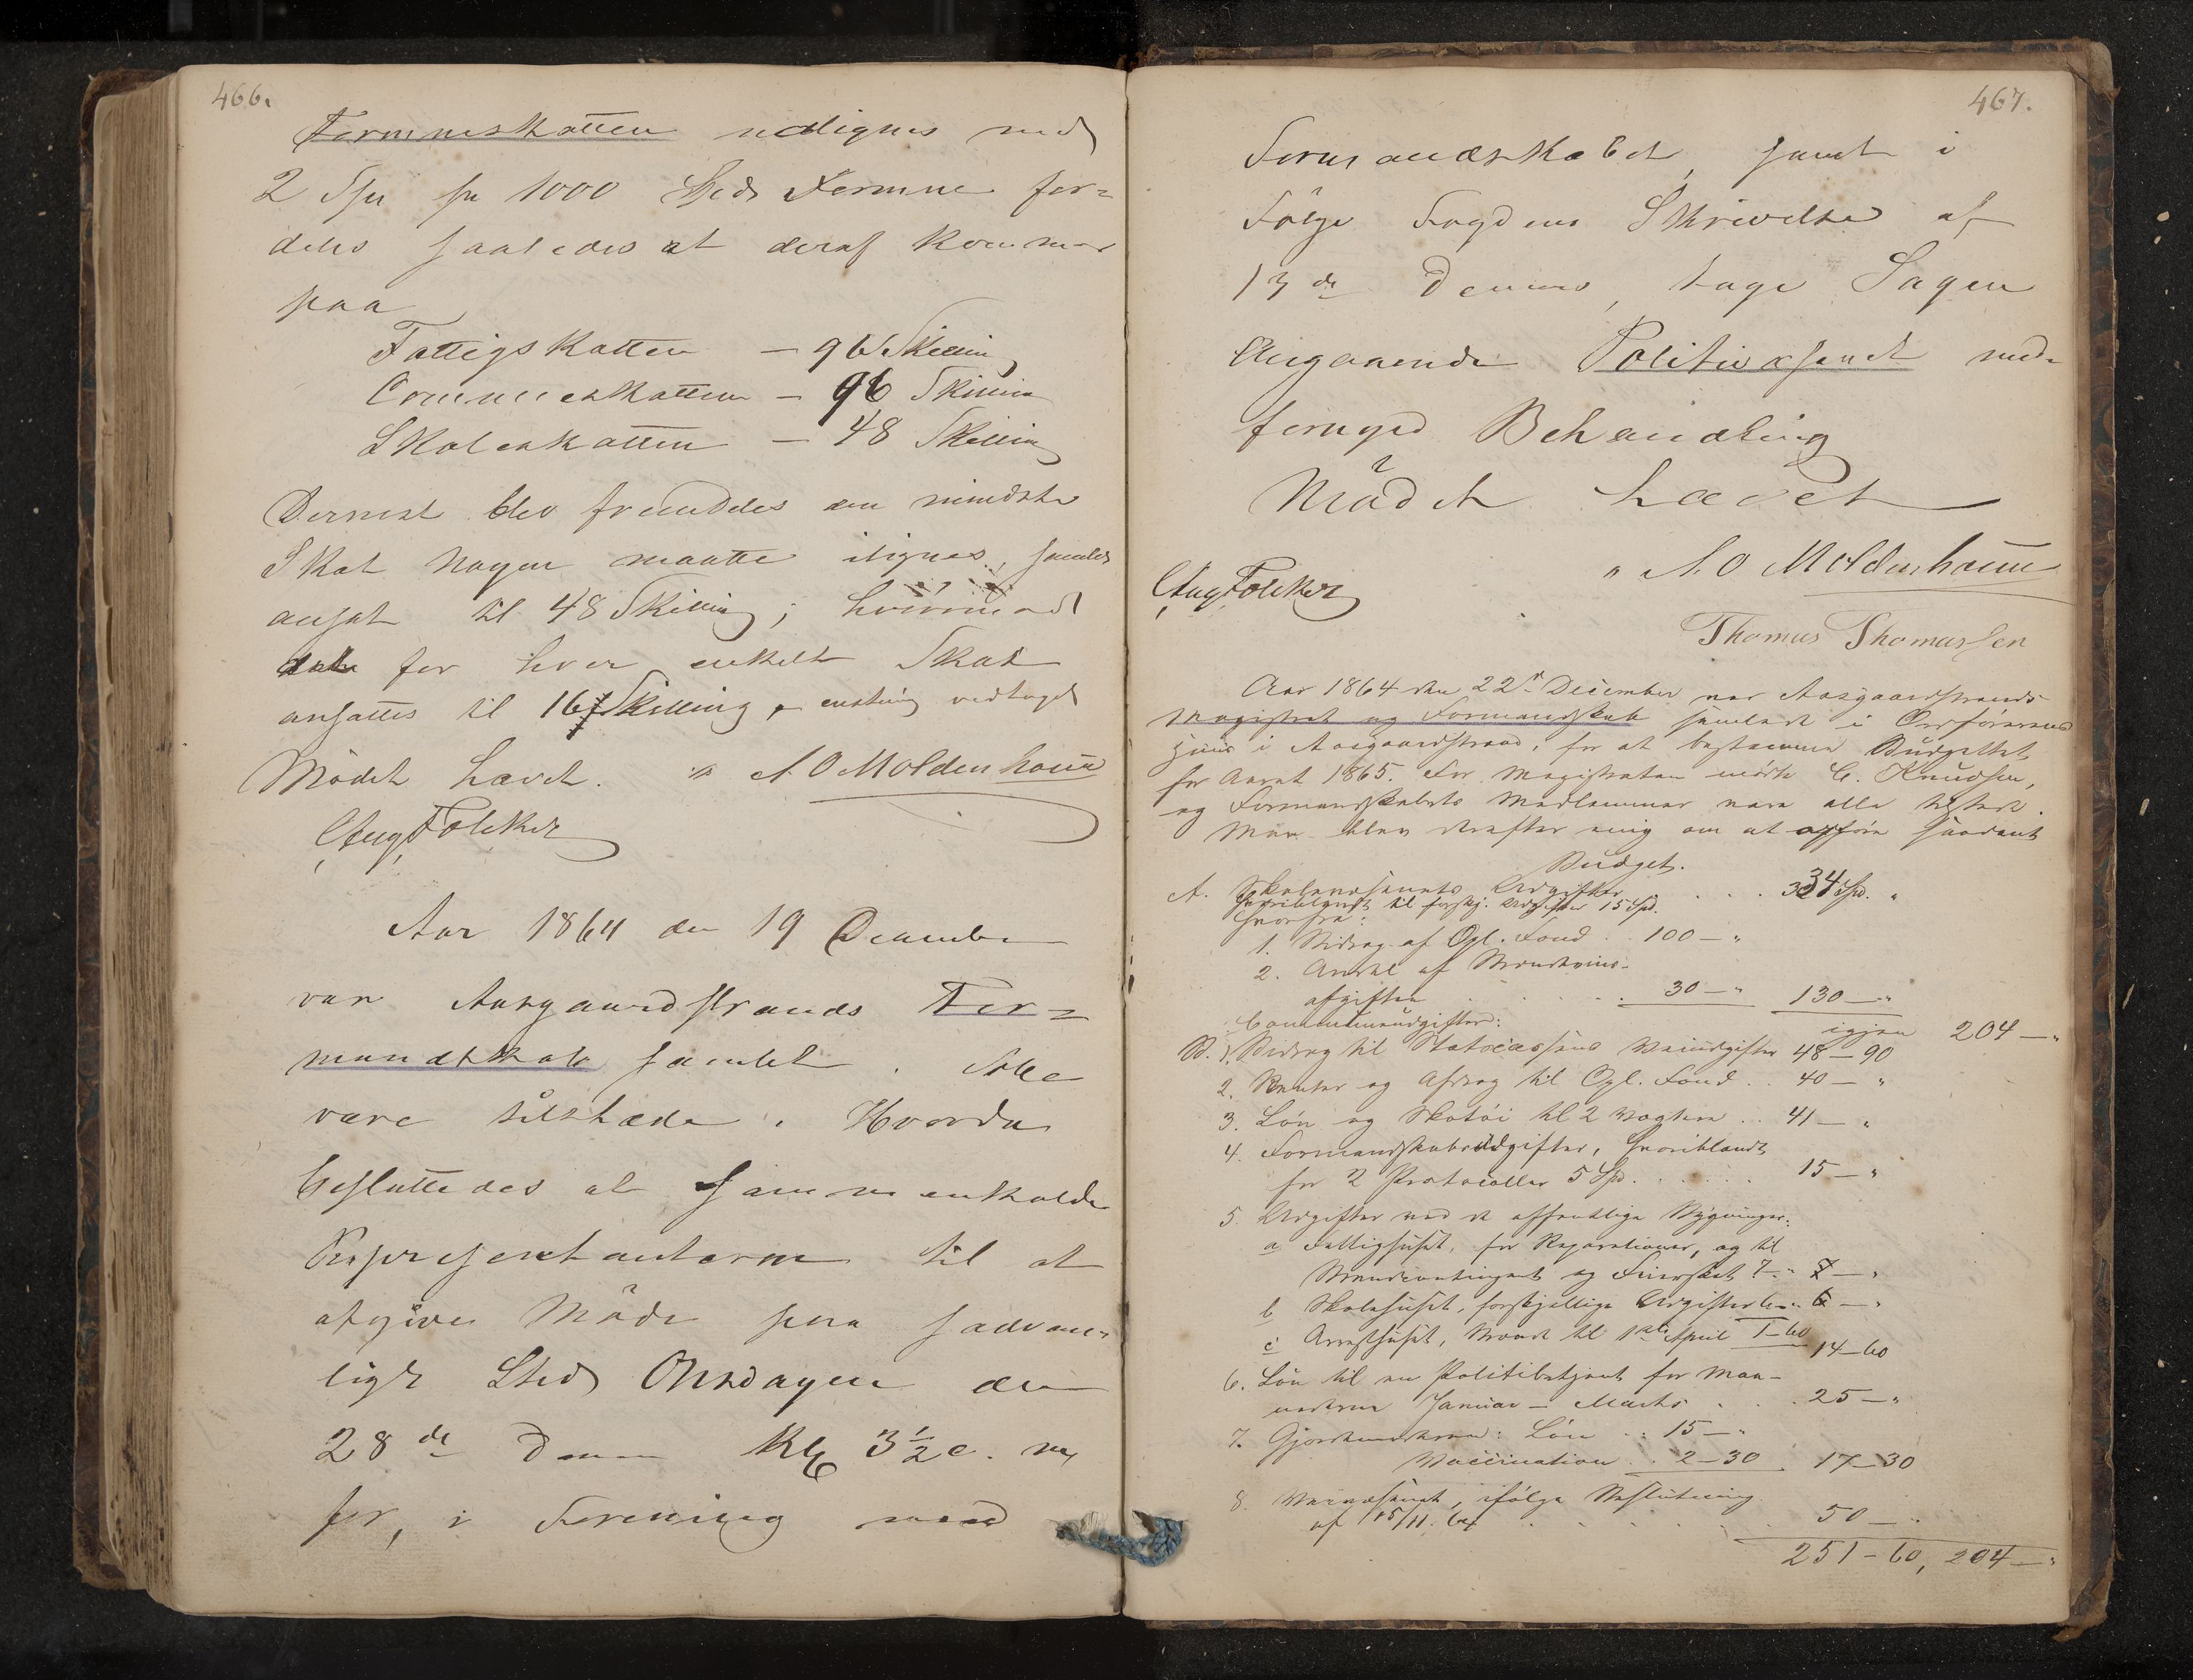 466.
Formueskatten udlignes med
2 Spd pr 1000 Spds Formue for-
deles saaledes at deraf kommer
paa
Fattigskatten — 96 Skilling
Communeskatten — 96 Skilling
Skoleskatten — 48 Skilling
Dernest blev fremdeles den mindste
Skat Nogen maatte ilignes, samlet
ansat til 48 Skilling; hvorimod
for hver enkelt Skat
ansattes til 16 Skilling, enstemig vedtaget
Mødet hævet. A O Moldenhauer
Aug Folcker
Aar 1864 den 19 December
var Aasgaardstrands For-
mandskab samlet. Alle
vare tilstæde. Hvorda
besluttedes at sammenkalde
Repræsentanterne til at
afgive Møde paa sædvan-
ligt Sted Onsdagen den
28de Dennes Kl 3½ e. m
for, i Forening med
467.
Formandskabet, samt i
Følge Fogdens Skrivelse af
13de Dennes, tage Sagen
Angaaende Politivæsenet under
fornyed Behandling
Mødet hævet
A. O Moldenhauer
Aug Folcker
Thomas Thomassen
Aar 1864 den 22de December var Aasgaardstrands
Magistrat og Formandskab samlede i Ordførerens
Huus i Aasgaardstrand, for at bestemme Budgettet
for Aaret 1865. For Magistraten mødte C. Knudsen,
og Formandskabets Medlemmer vare alle tilstede.
Man blev derefter enig om at opføre saadant
Budget.
A. Skolevæsenets Udgifter . . . 334 Spd. "
Hvoriblandt til forskj. Udgifter 15 Spd.
Hvorfra:
1. Bidrag af Opl. Fond . . 100 — "
2. Andel af Brændeviins-
afgiften . . . . 30 — " 130 — "
igjen 204 — "
Communeudgifter:
B. 1. Bidrag til Statscassens Veiudgifter 48 — 90
2. Renter og Afdrag til Opl. Fond . . 40 — "
3. Løn og Skotøi til 2 Vægtere . . 41 — "
4. Formandskabsudgifter, hvoriblandt
for 2 Protocoller 5 Spd. . . . . 15 — "
5. Udgifter ved de offentlige Bygninger:
a Fattighuset, for Reparationer, og til
Brandcontingent og Feierskat 7 — "
b Skolehuset, forskjellige Udgifter 6 — "
c Arresthuset, Brænde til 1ste April 1 — 60 14 — 60
6. Løn til en Politibetjent for Maa-
nederne Januar — Marts . . . 25 — "
7. Gjordemoderen: Løn . . 15 — "
Vaccination . . 2 — 30 17 — 30
8. Veivæsenet, ifølge Beslutning
af 15/11. 64 . . . . . 50 — "
251 — 60, 204 — "